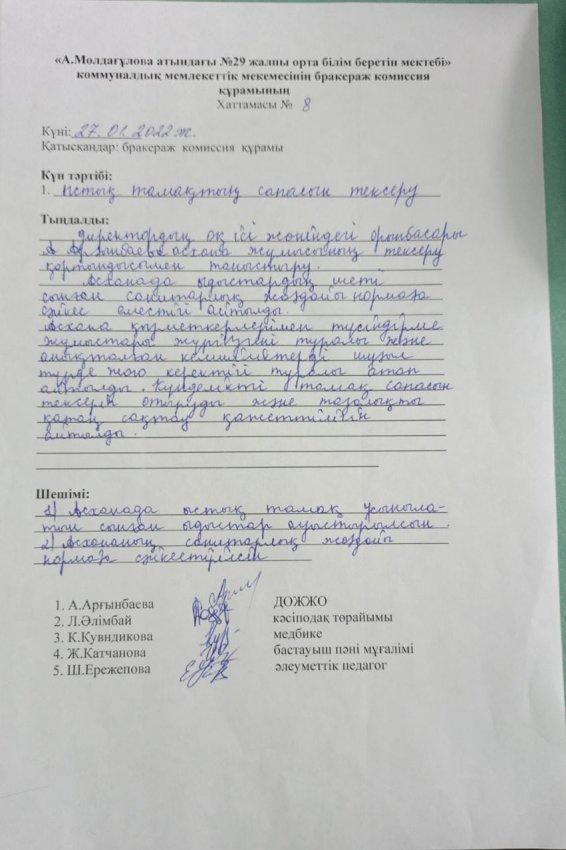 «А.Молдағұлова атындағы №29 жалпы орта білім беретін мектебі»
коммуналдық мемлекеттік мекемесінің бракераж комиссия
құрамының
Хаттамасы № 8
Күні: 27.01.2022ж.
Қатысқандар: бракераж комиссия құрамы
Күн тәртібі:
1. Ыстық тамақтың сапасын тексеру
Тыңдалды:
Директордың оқ ісі жөніндегі орынбасары
А Арғынбаева асхана жұмысының тексеру
қортындысымен таныстыру.
Асханада ыдыстардың шеті
сынған санитарлық жағдайы нормаға
сәйкес еместігі айтылды.
Асхана қызметкерлерімен түсіндірме
жұмыстары жүргізгені туралы және
анықталған кемшіліктерді шұғыл
түрде жою керектігі туралы атап
айтылды. Күнделікті тамақ сапасын
тексеріп отыруды және тазалықты
қатаң сақтау қажеттілігін
айтылды.
Шешімі:
1) Асханада ыстық тамақ ұсыныла-
тын сынған ыдыстар ауыстырылсын.
2) Асхананың санитарлық жағдайы
нормаға сәйкестірілсін
1. А.Арғынбаева ДОЖЖО
2. Л.Әлімбай кәсіподақ төрайымы
3. К.Кувндикова медбике
4. Ж.Катчанова бастауыш пәні мұғалімі
5. Ш.Ережепова әлеуметтік педагог